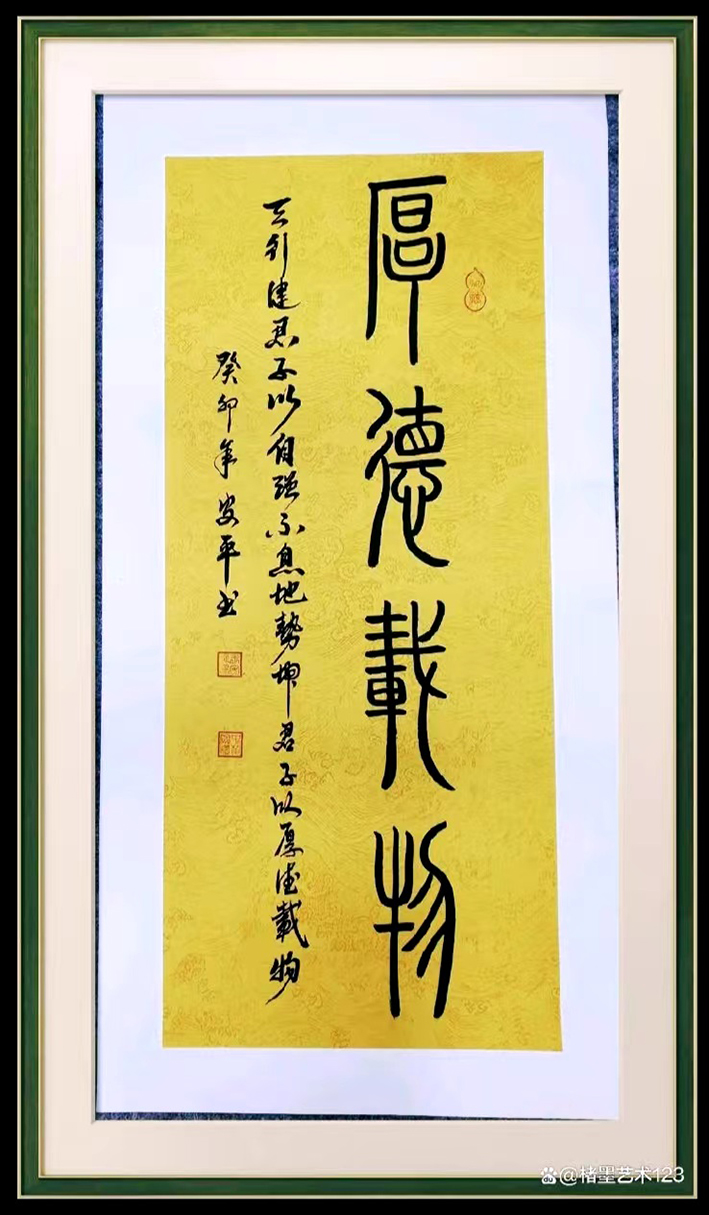 厚德載物
天行健君子以自强不息地勢坤君子以厚德載物
癸卯年安平书
@楮墨艺术123